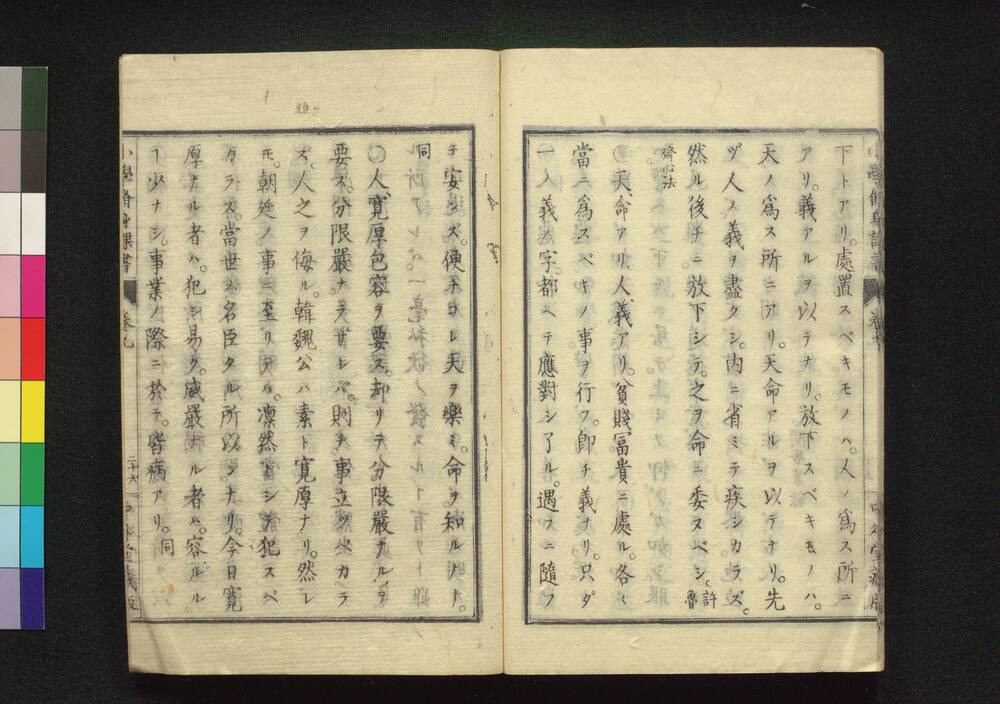 下トアリ。處置スベキモノハ。人ノ爲ス所ニ
アリ。義アルヲ以テナリ。放下スベキモノハ。
天ノ爲ス所ニアリ。天命アルヲ以テナリ。先
ヅ人ノ義ヲ盡クシ。内ニ省ミテ疾シカラズ。
然ル後チニ放下シテ。之ヲ命ニ委ヌベシ。許魯
齊心法
○天命アリ人義アリ。貧賤冨貴ニ處ル。各〻
當ニ爲スベキノ事ヲ行フ。卽チ義ナリ。只ダ
一ノ義ノ字。都ヘテ應對シ了ル。遇フニ隨フ
小學脩身課書 卷九
テ安ンズ。便チコレ天ヲ樂ミ。命ヲ知ルナリ。
同
○人寛厚包容ヲ要ス。却リテ分限嚴ナルヲ
要ス。分限嚴ナラザレバ。則チ事立ツベカラ
ズ。人之ヲ侮ル。韓魏公ハ素ト寛厚ナリ。然レ
𪜈。朝廷ノ事ニ至リテハ。凛然トシテ犯スベ
カラズ。當世ノ名臣タル所以ンナリ。今日寛
厚ナル者ハ。犯シ易ク。威嚴ナル者ハ。容ルル
ヿ少ナシ。事業ノ際ニ於テ。皆病アリ。同
小學脩身課書 卷九 二十六